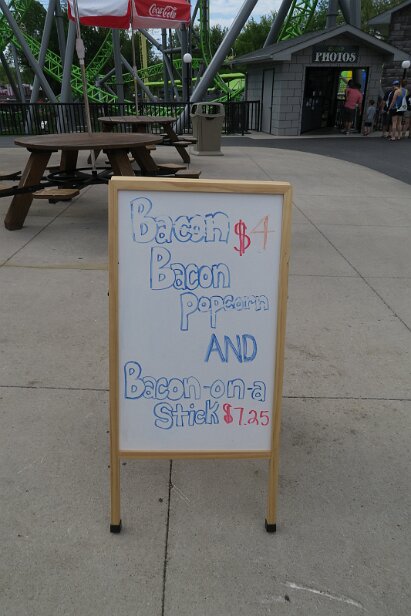 Coca-Cola
PHOTOS
Bacon $4
Bacon
Popcorn
AND
Bacon-on-a
Stick $7.25